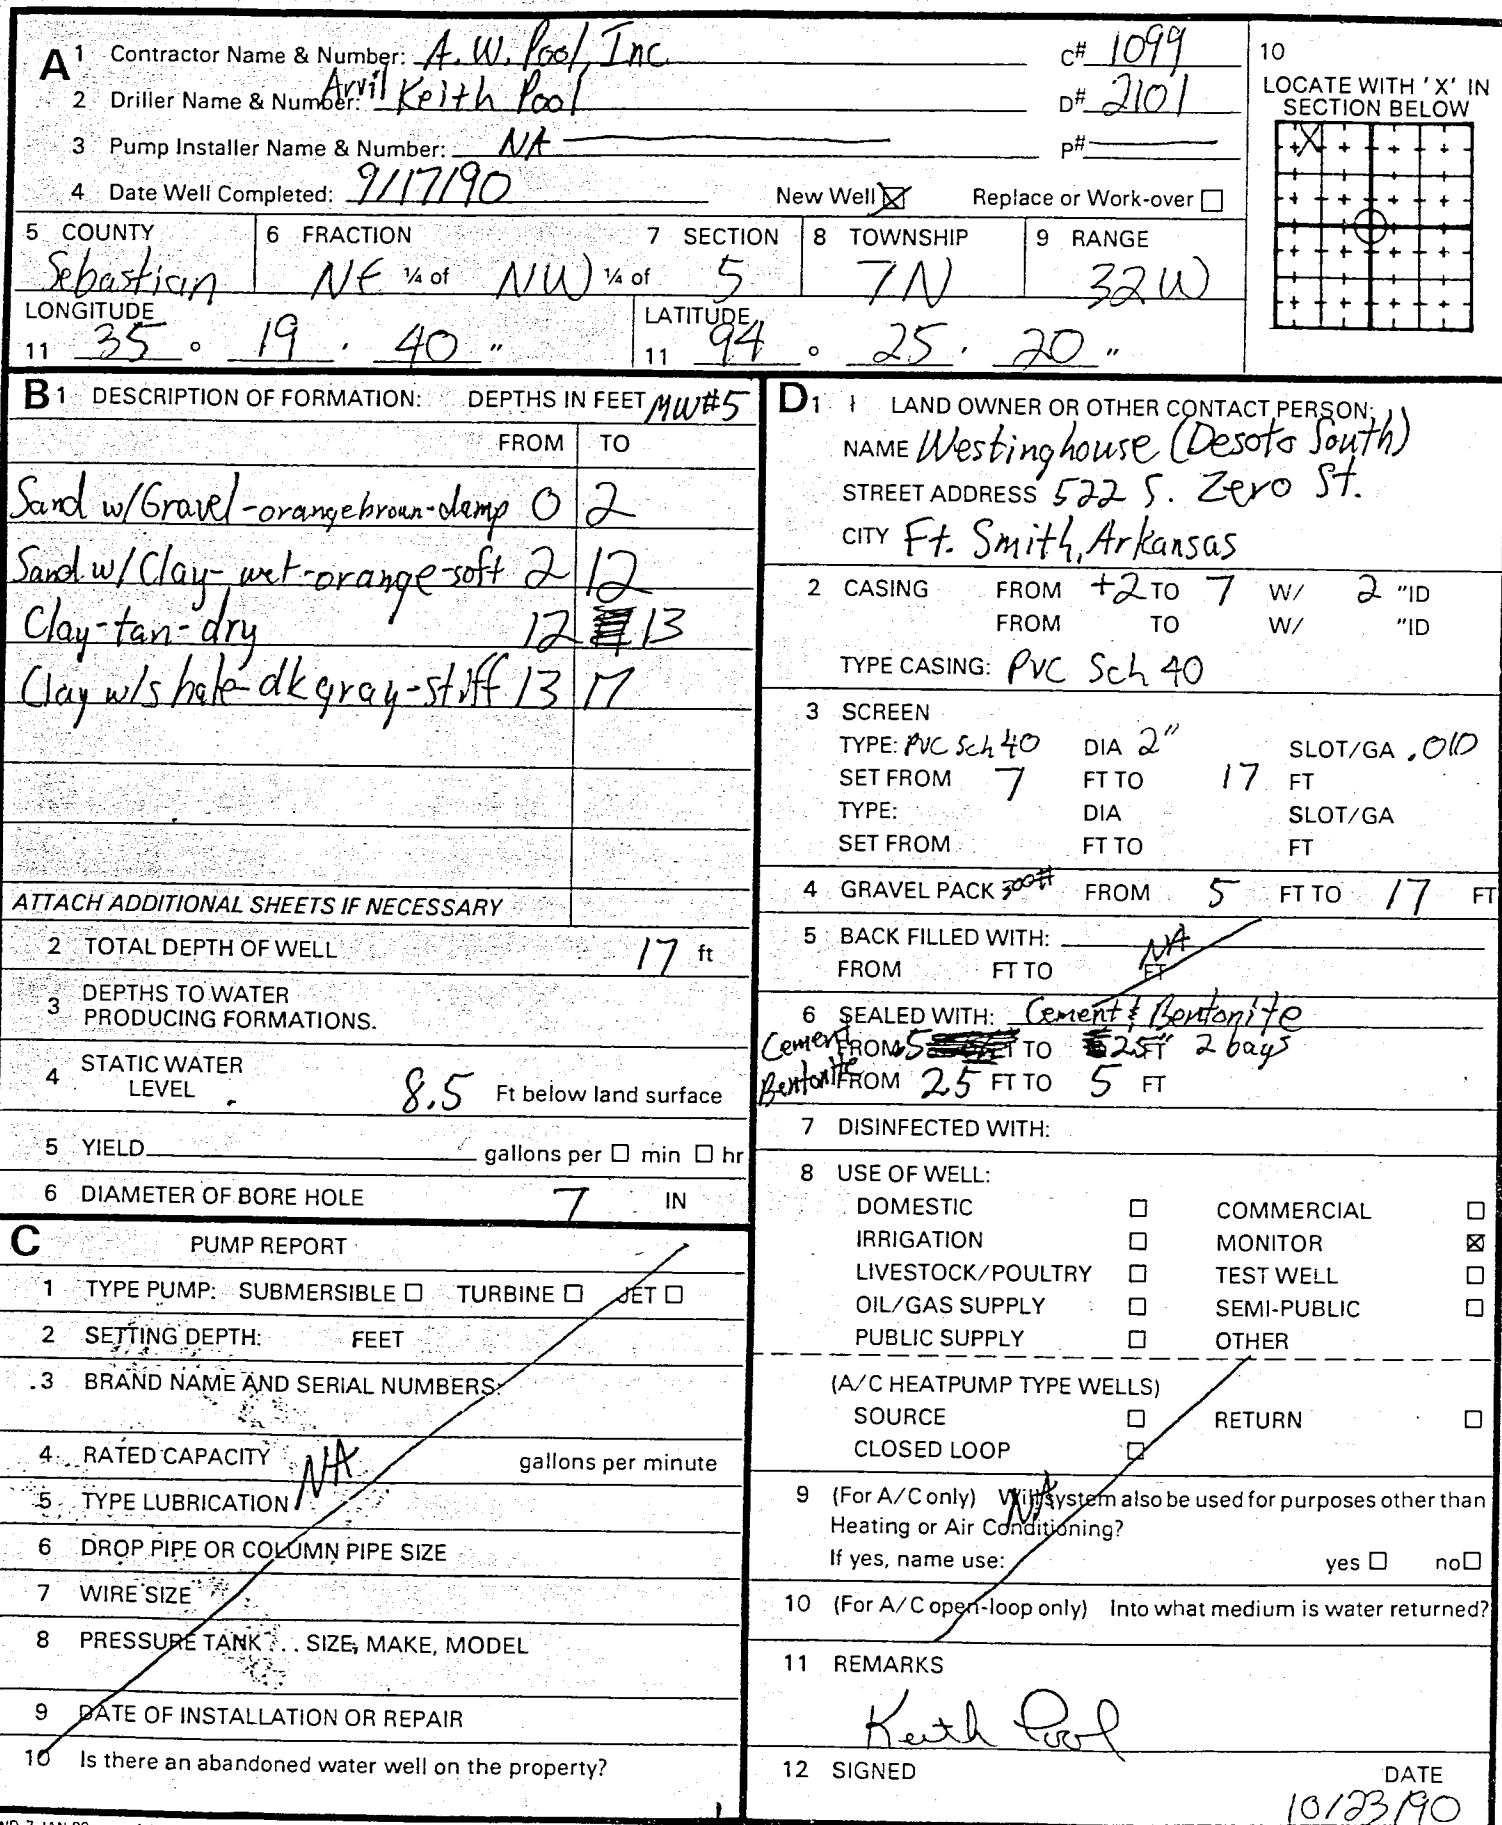 A 1 Contractor Name & Number: A.W. Pool, Inc. C# 1099
2 Driller Name & Number: Arvil Keith Pool D# 2101
3 Pump Installer Name & Number: NA P#
4 Date Well Completed: 9/17/90 New Well ☒ Replace or Work-over ☐
10
LOCATE WITH 'X' IN
SECTION BELOW
X
5 COUNTY 6 FRACTION 7 SECTION 8 TOWNSHIP 9 RANGE
Sebastian NE ¼ of NW ¼ of 5 7N 32W
LONGITUDE LATITUDE
11 35 ° 19 ' 40 " 11 94 ° 25 ' 20 "
B 1 DESCRIPTION OF FORMATION: DEPTHS IN FEET MW#5
FROM TO
Sand w/Gravel-orangebrown-damp 0 2
Sand w/Clay-wet-orange-soft 2 12
Clay-tan-dry 12 13
Clay w/shale-dk gray-stiff 13 17
ATTACH ADDITIONAL SHEETS IF NECESSARY
2 TOTAL DEPTH OF WELL 17 ft
3 DEPTHS TO WATER
PRODUCING FORMATIONS.
4 STATIC WATER
LEVEL 8.5 Ft below land surface
5 YIELD gallons per ☐ min ☐ hr
6 DIAMETER OF BORE HOLE 7 IN
C PUMP REPORT
1 TYPE PUMP: SUBMERSIBLE ☐ TURBINE ☐ JET ☐
2 SETTING DEPTH: FEET
3 BRAND NAME AND SERIAL NUMBERS:
4 RATED CAPACITY NA gallons per minute
5 TYPE LUBRICATION
6 DROP PIPE OR COLUMN PIPE SIZE
7 WIRE SIZE
8 PRESSURE TANK . . . SIZE, MAKE, MODEL
9 DATE OF INSTALLATION OR REPAIR
10 Is there an abandoned water well on the property?
D 1 LAND OWNER OR OTHER CONTACT PERSON:
NAME Westinghouse (Desoto South)
STREET ADDRESS 522 S. Zero St.
CITY Ft. Smith, Arkansas
2 CASING FROM +2 TO 7 W/ 2 "ID
FROM TO W/ "ID
TYPE CASING: PVC Sch 40
3 SCREEN
TYPE: PVC Sch 40 DIA 2" SLOT/GA .010
SET FROM 7 FT TO 17 FT
TYPE: DIA SLOT/GA
SET FROM FT TO FT
4 GRAVEL PACK 300# FROM 5 FT TO 17 FT
5 BACK FILLED WITH: NA
FROM FT TO FT
6 SEALED WITH: Cement & Bentonite
Cement FROM .5 FT TO 2.5 FT 2 bags
Bentonite FROM 2.5 FT TO 5 FT
7 DISINFECTED WITH:
8 USE OF WELL:
DOMESTIC ☐ COMMERCIAL ☐
IRRIGATION ☐ MONITOR ☒
LIVESTOCK/POULTRY ☐ TEST WELL ☐
OIL/GAS SUPPLY ☐ SEMI-PUBLIC ☐
PUBLIC SUPPLY ☐ OTHER
(A/C HEATPUMP TYPE WELLS)
SOURCE ☐ RETURN ☐
CLOSED LOOP ☐
9 (For A/C only) Will system also be used for purposes other than
NA
Heating or Air Conditioning?
If yes, name use: yes ☐ no ☐
10 (For A/C open-loop only) Into what medium is water returned?
11 REMARKS
Keith Pool
12 SIGNED DATE
10/23/90